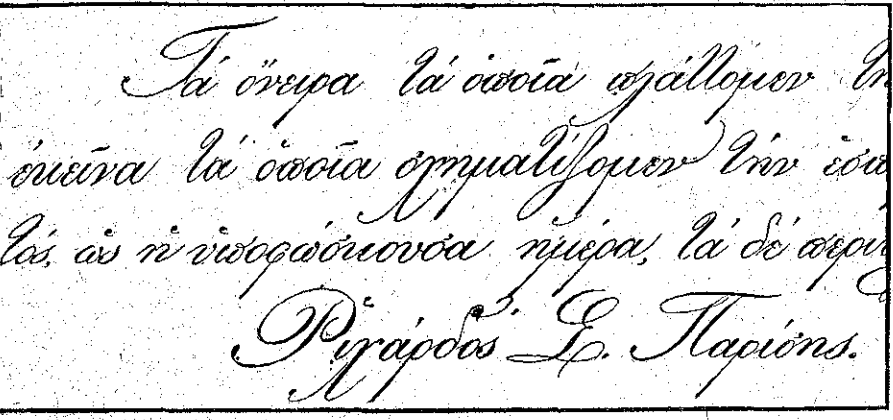 Τά ὄνειρα τά ὁποῖα πλάττομεν τη
ἐκεῖνα τά ὁποῖα σχηματίζομεν τήν ἑσπ
τός, ὡς ἡ ὑποφώσκουσα ἡμέρα, τά δέ περι
Ῥιχάρδος Σ. Παρίσης.